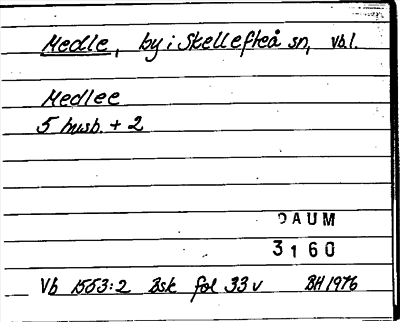 Medle, by i Skellefteå sn, Vbl.
Medlee
5 husb. + 2
DAUM
3160
Vb 1553:2 Bsk fol 33 v BH 1976